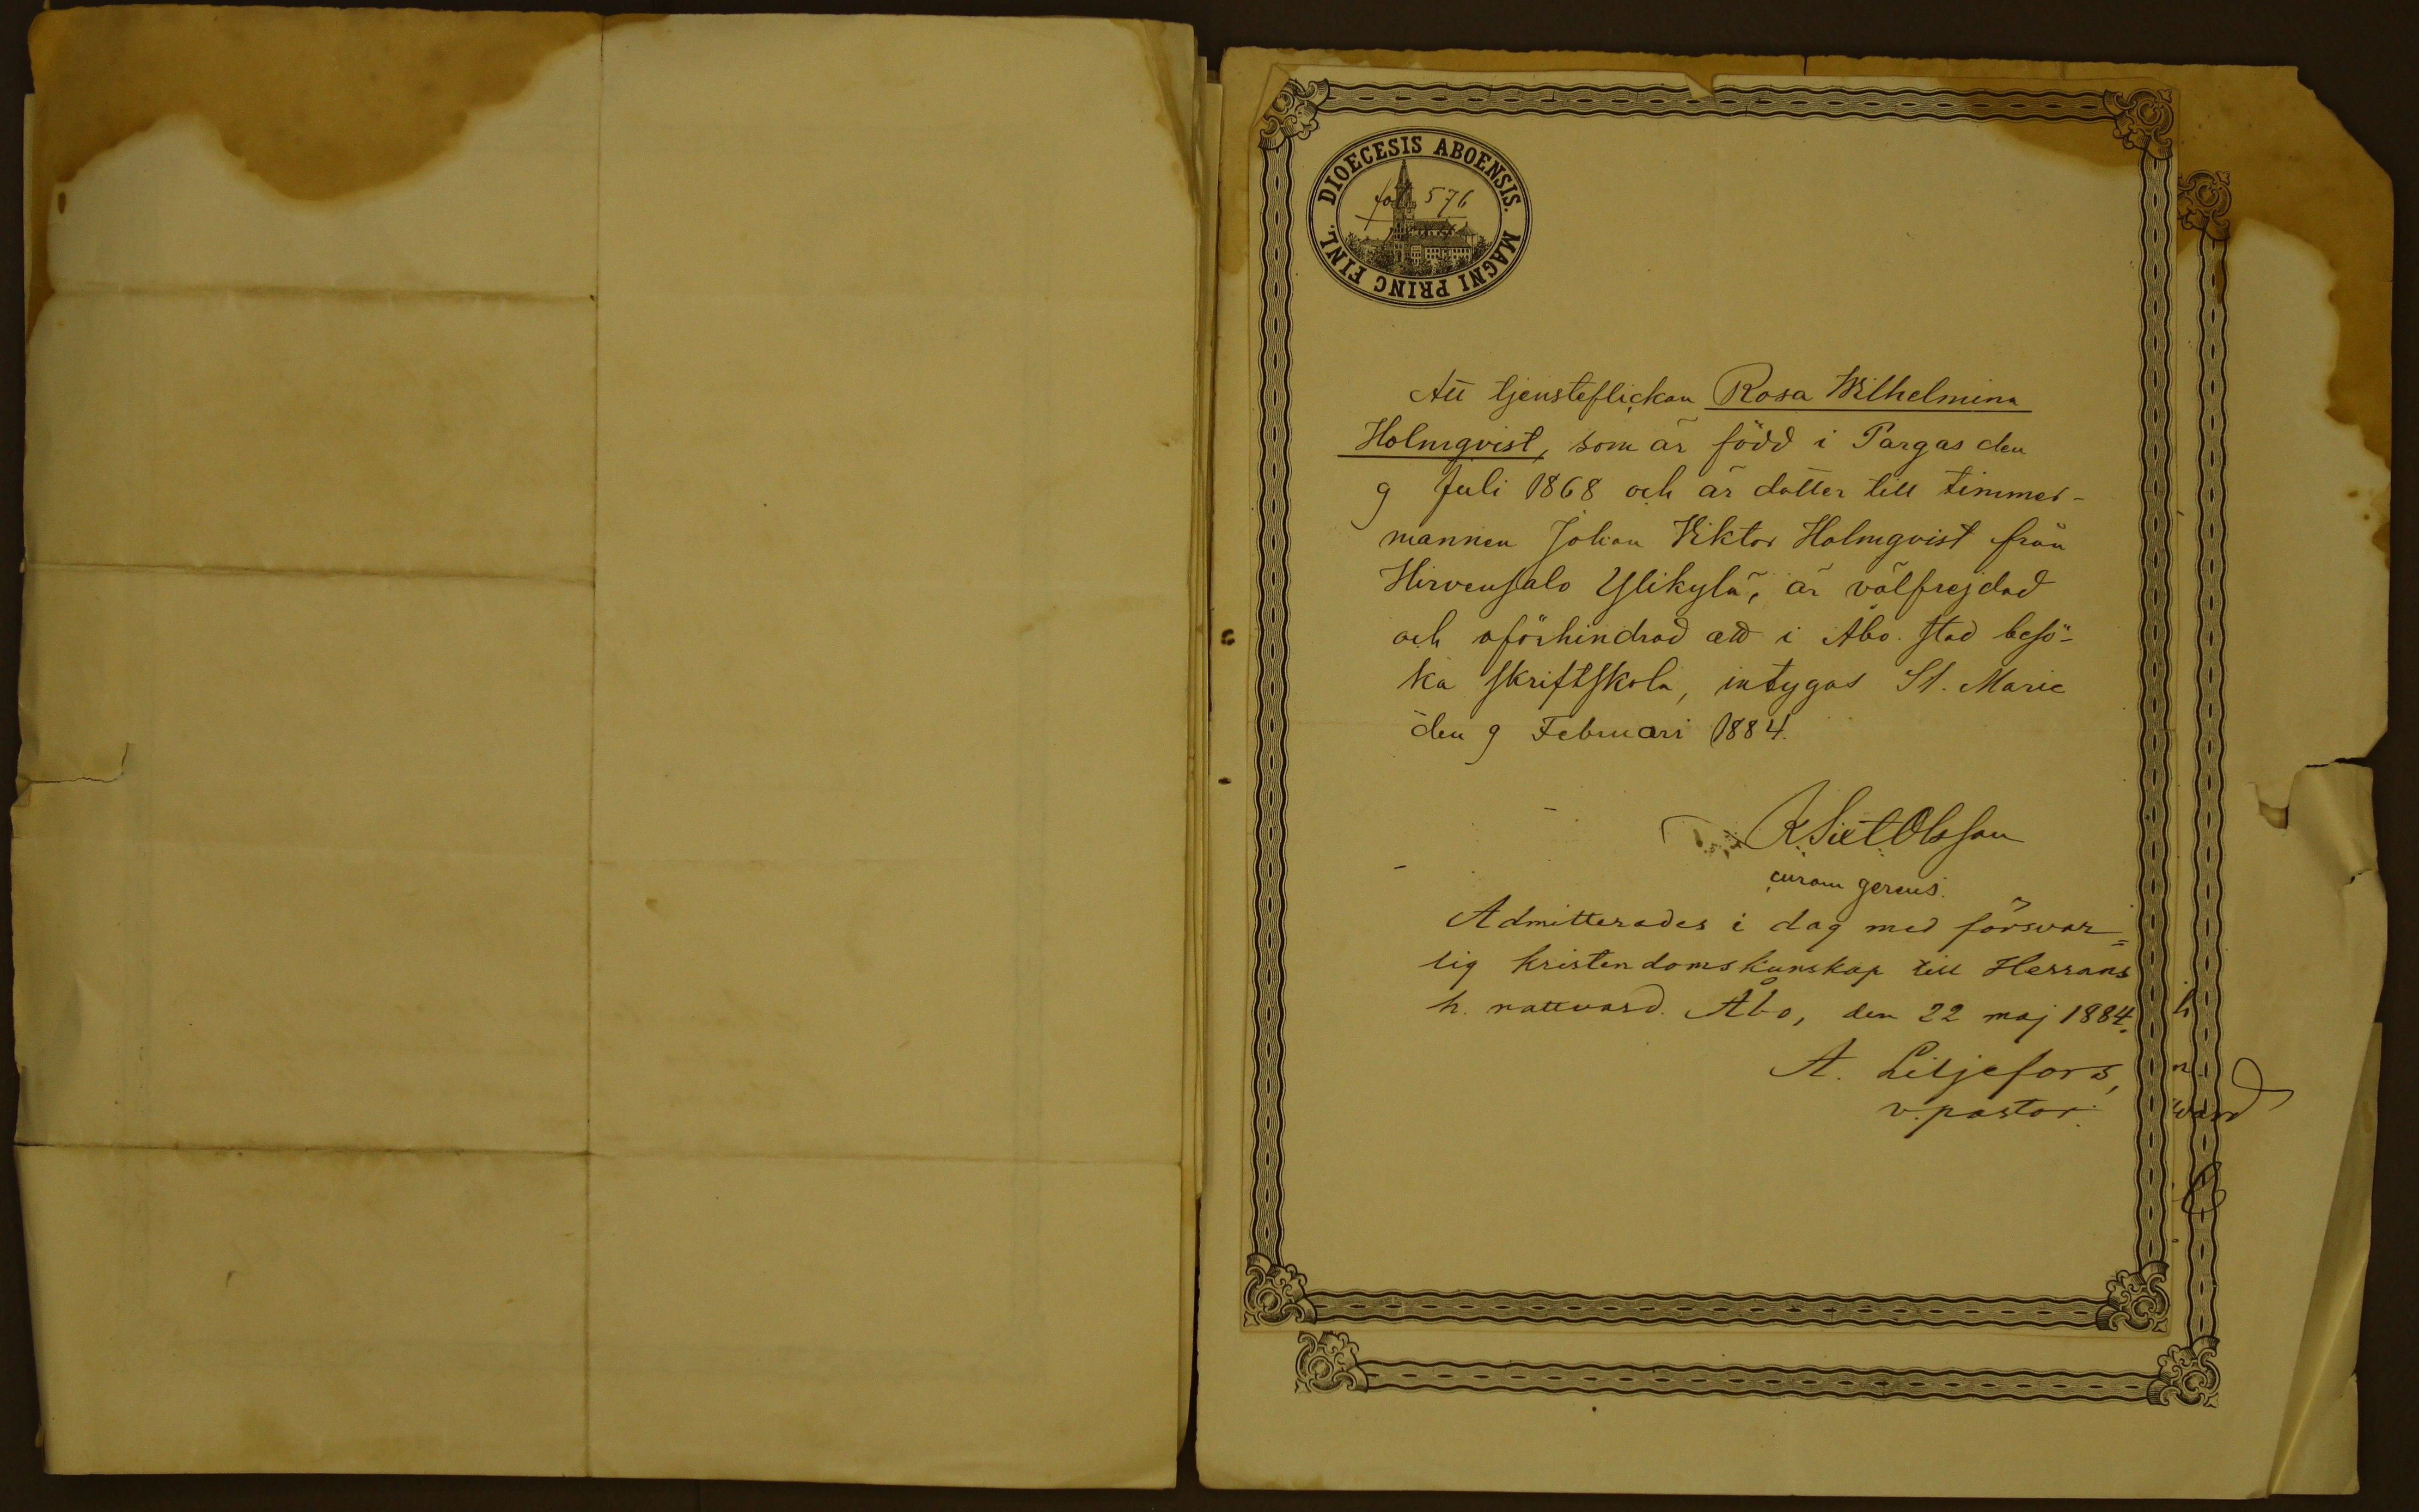 DIOECESIS ABOENSIS. MAGNI PRINC FINL.
fol 576
Att tjensteflickan Rosa Wilhelmina
Holmqvist, som är född i Pargas den
9 Juli 1868 och är dotter till timmer-
mannen Johan Viktor Holmqvist från
Hirvensalo Ylikylä, är välfrejdad
och oförhindrad att i Åbo stad besö-
ka skriftskola, intygas St. Marie
den 9 Februari 1884.
Olsson
curam gerens.
Admitterades i dag med försvar=
lig kristendomskunskap till Herrans
h. nattvard. Åbo, den 22 maj 1884.
A. Liljefors,
v. pastor.